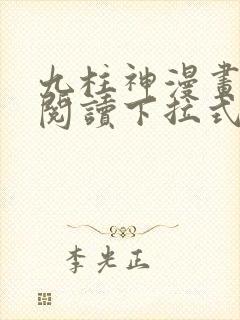 九柱神漫畫
閱讀下拉式
李光正